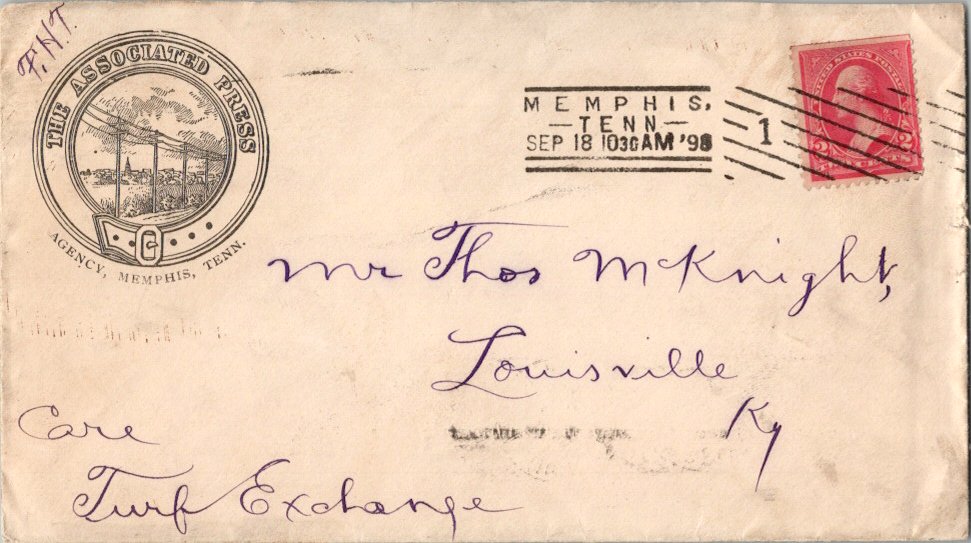 F.H.T.
THE ASSOCIATED PRESS
AGENCY, MEMPHIS, TENN.
MEMPHIS,
—TENN—
SEP 18 1030AM '98
1
UNITED STATES POSTAGE
2 2
TWO CENTS
Mr Thos McKnight,
Louisville
Ky
Care
Turf Exchange